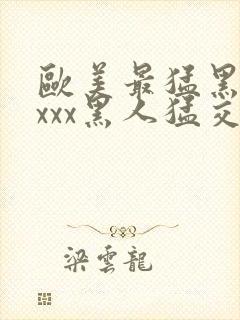 歐美最猛黑
xxx黑人猛交
梁雲龍